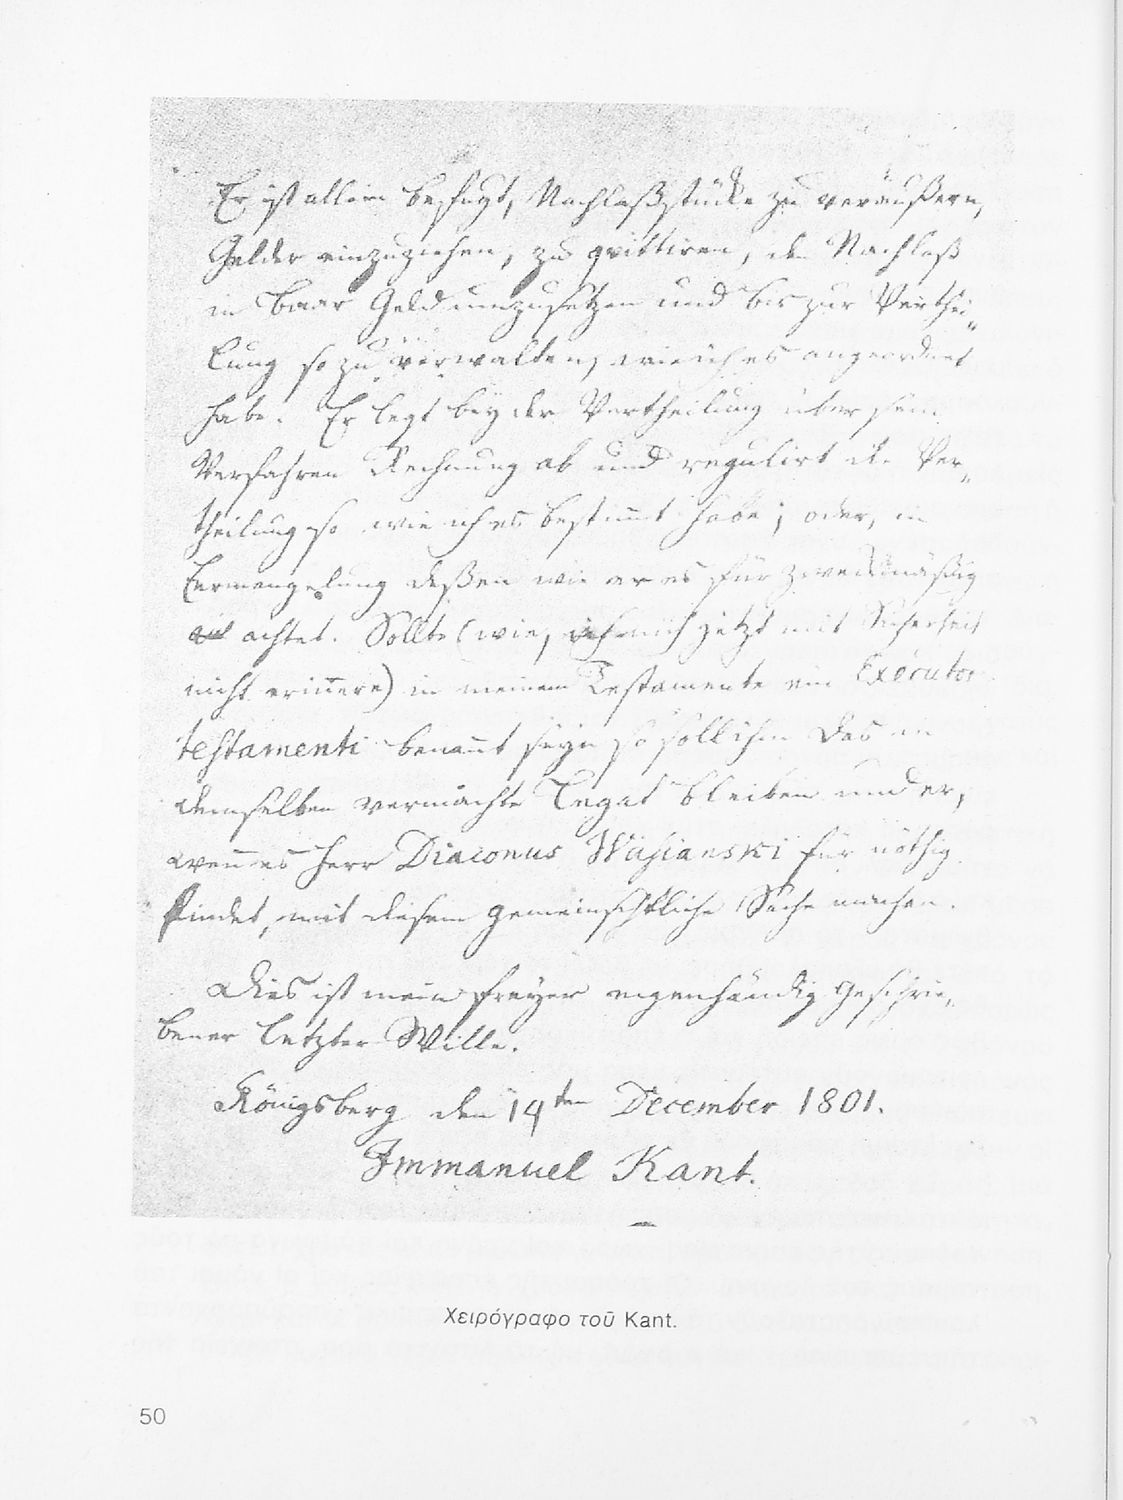 Er ist allein befugt, Nachlaßstücke zu veräußern,
Gelder einzuziehen, zu quittiren, den Nachlaß
in baar Geld umzusetzen und bis zur Verthei„
lung so zu verwalten, wie ich es angeordnet
habe. Er legt bey der Vertheilung über sein
Verfahren Rechnung ab und regulirt die Ver„
theilung so wie ich es bestimmt habe; oder, in
Ermangelung deßen wie er es für zweckmäßig
achtet. Sollte (wie ich mich jetzt mit Sicherheit
nicht erinnere) in meinem Testamente ein Executor
testamenti benannt seyn so soll ihm das
demselben vermachte Legat bleiben und er,
wenn es Herr Diaconus Wasianski für nöthig
findet, mit diesem gemeinschftliche Sache machen.
Dies ist mein freyer eigenhändig geschrie„
bener letzter Wille.
Königsberg den 14ten December 1801.
Immanuel Kant.
Χειρόγραφο τοῦ Kant.
50